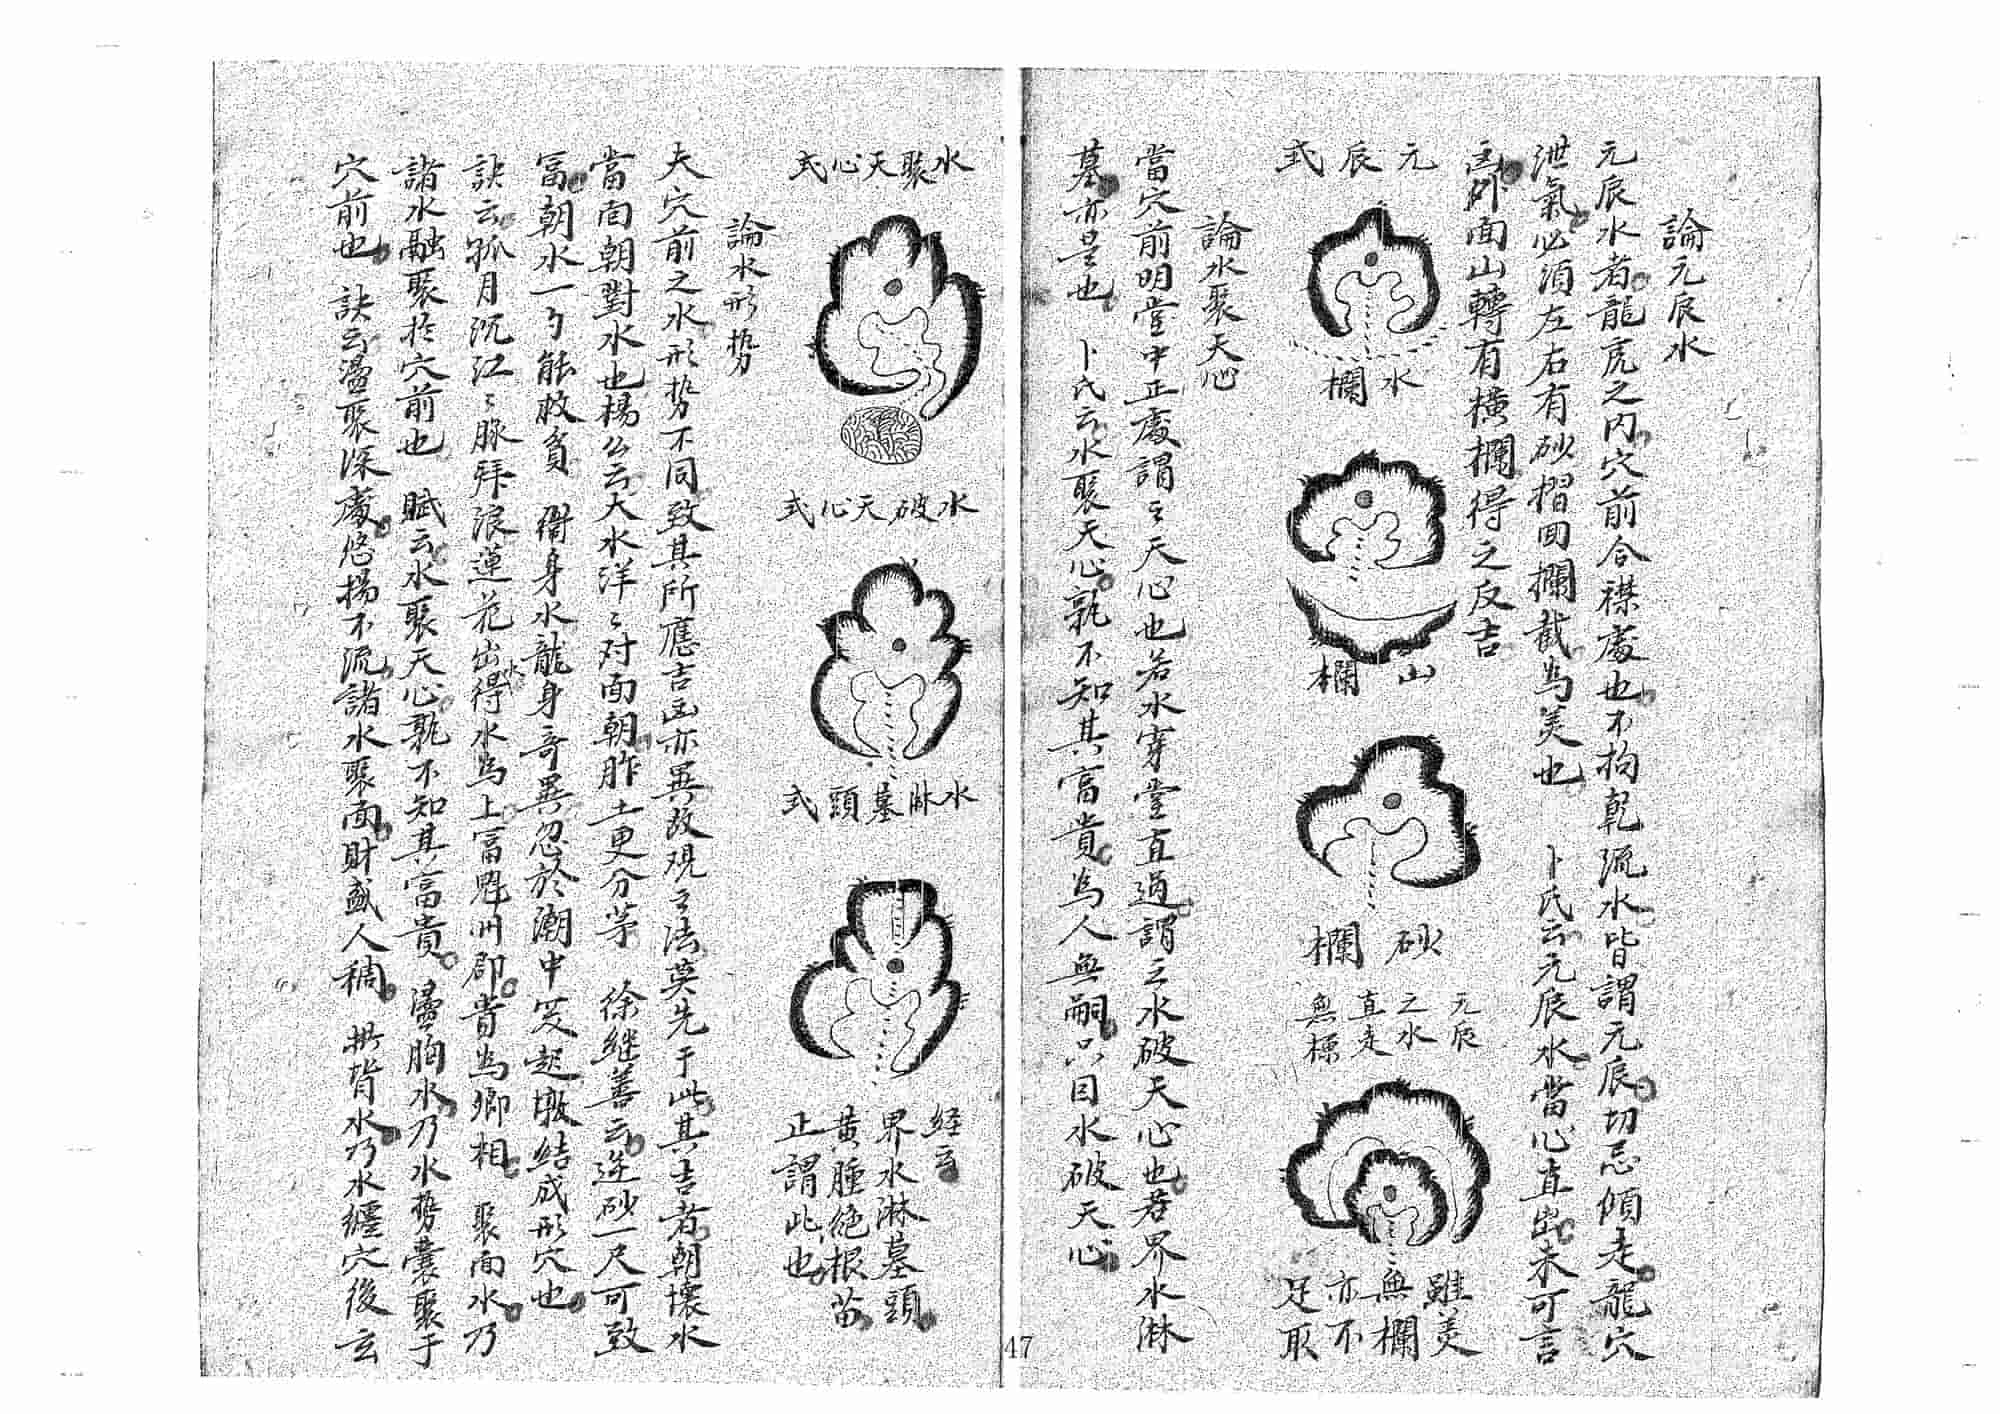 論元辰水
元辰水者龍虎之內穴前合襟處也不拘乾流水皆謂元辰切忌傾走龍穴
泄氣必須左右有砂摺回攔截為美也 卜氏云元辰水當心直出未可言
凶外面山轉有橫攔得之反吉
元辰式
水欄
山欄
砂欄
元辰
之水
直走
無穩
雖美
無欄
亦不
足取
論水聚天心
當穴前明堂中正處謂之天心也若水穿堂直過謂之水破天心也若界水淋
墓亦是也 卜氏云水聚天心孰不知其富貴為人無嗣只因水破天心
水聚天心式
水破天心式
水淋墓頭式
経云
界水淋墓頭
黃腫絶根苗
正謂此也
論水形势
夫穴前之水形势不同致其所應吉凶亦異故观之法莫先于此其吉者朝懷水
當面朝對水也楊公云大水洋〻对面朝胙土更分茅 徐継善云逆砂一尺可致
富朝水一勺能救貧 衛身水龍身奇異忽於潮中突起墩結成形穴也
訣云孤月沉江〻豚拜浪蓮花出水得水為上富甦州郡貴為卿相 聚面水乃
諸水融聚於穴前也 賦云水聚天心孰不知其富貴 盪胸水乃水势囊聚于
穴前也 訣云盪聚深處悠揚不流諸水聚面財盛人稠 拱背水乃水纏穴後玄
47